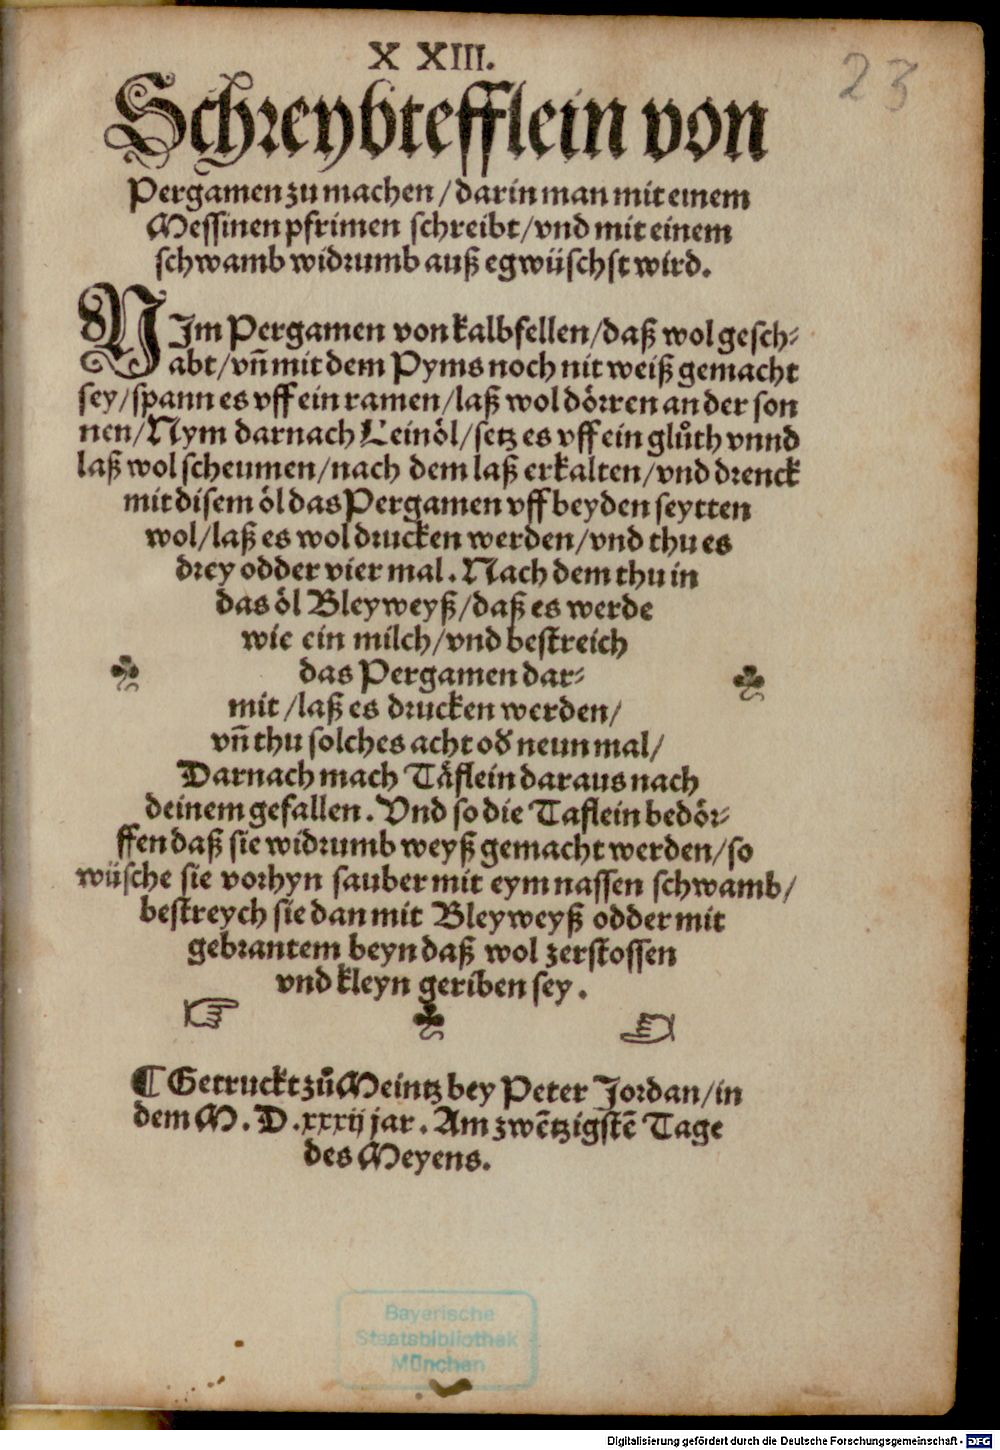 X XIII.
23
Schreybtefflein von
Pergamen zu machen / darin man mit einem
Messinen pfrimen schreibt / vnd mit einem
schwamb widrumb auß egwüschst wird.
NIm Pergamen von kalbfellen / daß wol gesch⸗
abt / vñ mit dem Pyms noch nit weiß gemacht
sey / spann es vff ein ramen / laß wol dörren an der son
nen / Nym darnach Leinöl / setz es vff ein glůth vnnd
laß wol scheumen / nach dem laß erkalten / vnd drenck
mit disem öl das Pergamen vff beyden seytten
wol / laß es wol drucken werden / vnd thu es
drey odder vier mal. Nach dem thu in
das öl Bleyweyß / daß es werde
wie ein milch / vnd bestreich
das Pergamen dar⸗
mit / laß es drucken werden /
vñ thu solches acht oď neun mal /
Darnach mach Täflein daraus nach
deinem gefallen. Vnd so die Taflein bedör⸗
ffen daß sie widrumb weyß gemacht werden / so
wüsche sie vorhyn sauber mit eym nassen schwamb /
bestreych sie dan mit Bleyweyß odder mit
gebrantem beyn daß wol zerstossen
vnd kleyn geriben sey.
¶ Getruckt zů Meintz bey Peter Jordan / in
dem M. D. xxxij jar. Am zwẽtzigstẽ Tage
des Meyens.
Bayerische
Staatsbibliothek
München
Digitalisierung gefördert durch die Deutsche Forschungsgemeinschaft - DFG